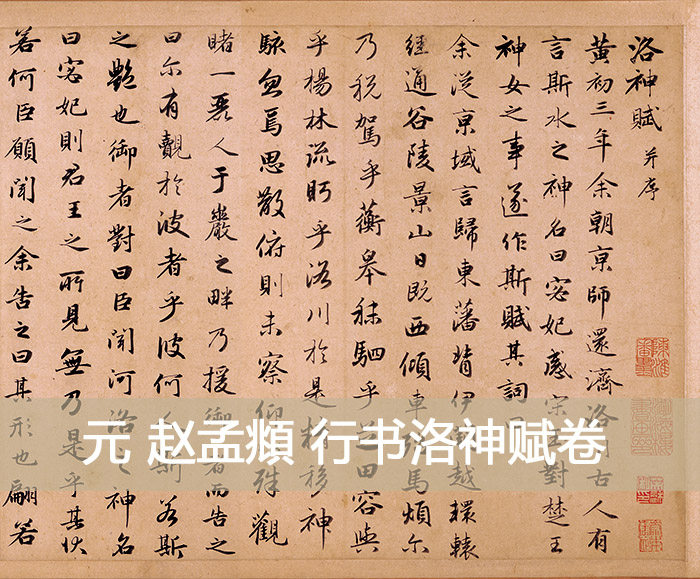 洛神賦 并序
黃初三年余朝京師還濟洛川古人有
言斯水之神名曰宓妃感宋玉對楚王
神女之事遂作斯賦其詞曰
余從京域言歸東藩背伊闕越轘轅
經通谷陵景山日既西傾車殆馬煩尔
乃稅駕乎蘅皋秣駟乎芝田容與
乎楊林流眄乎洛川於是精移神
駭忽焉思散俯則未察仰以殊觀
睹一麗人于巖之畔乃援御者而告之
曰尔有覿於彼者乎彼何人斯若斯
之艷也御者對曰臣聞河洛之神名
曰宓妃則君王之所見無乃是乎其狀
若何臣願聞之余告之曰其形也翩若
元 赵孟頫 行书洛神赋卷